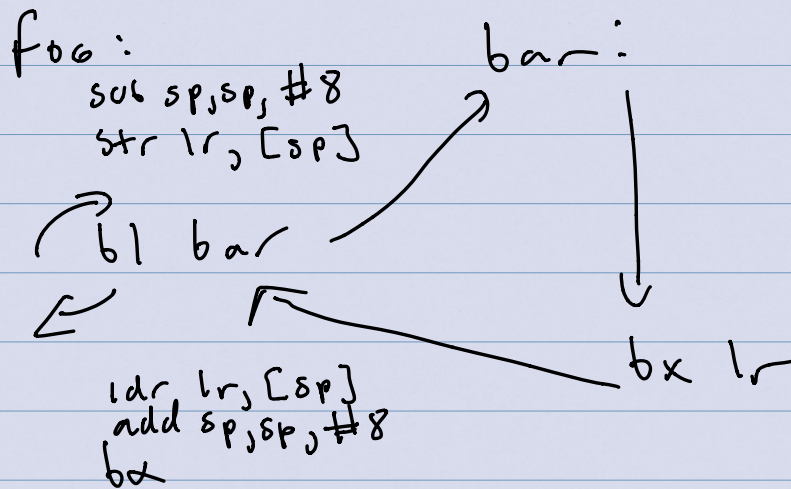 foo:
sub sp,sp, #8
str lr, [sp]
bl bar
ldr lr, [sp]
add sp,sp, #8
bx
bar:
bx lr